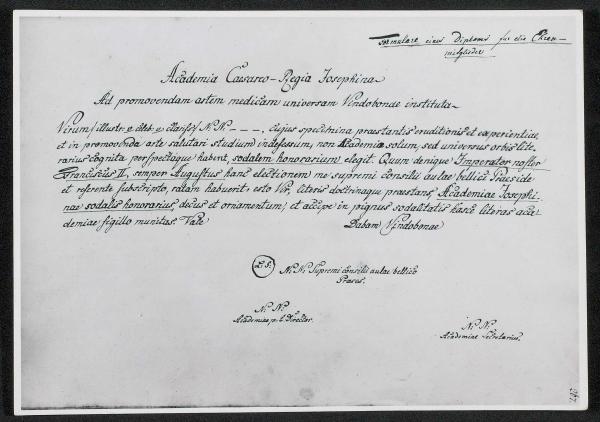 Formulare eines Diploms für die Ehren-
mitglieder
Academia Caesareo-Regia Josephina
Ad promovendam artem medicam universam Vindobonae instituta-
Virum / illustr. e celeb. e clariss / N. N. - - - -, cujus specimina praestantis eruditionis et experientiae,
et in promovenda arte salutari studium indefessum, non Academia solum, sed universus orbis lite-
rarius cognita perspectaque habent, sodalem honorarium elegit. Quum denique Imperator noster
Franciscus II, semper Augustus hanc electionem me supremi consilii aulae bellici Praeside
et referente subscripto, ratam habuerit: esto Vir, literis doctrinaque praestans, Academiae Josephi-
nae sodalis honorarius, decus et ornamentum, et accipe in pignus sodalitatis hasce literas aca-
demiae sigillo munitas. Vale
Dabam Vindobonae
L. S.
N. N. Supremi consilii aulae bellico
Praeses.
N. N.
Academiae p. t. Director.
N. N.
Academiae Secretarius.